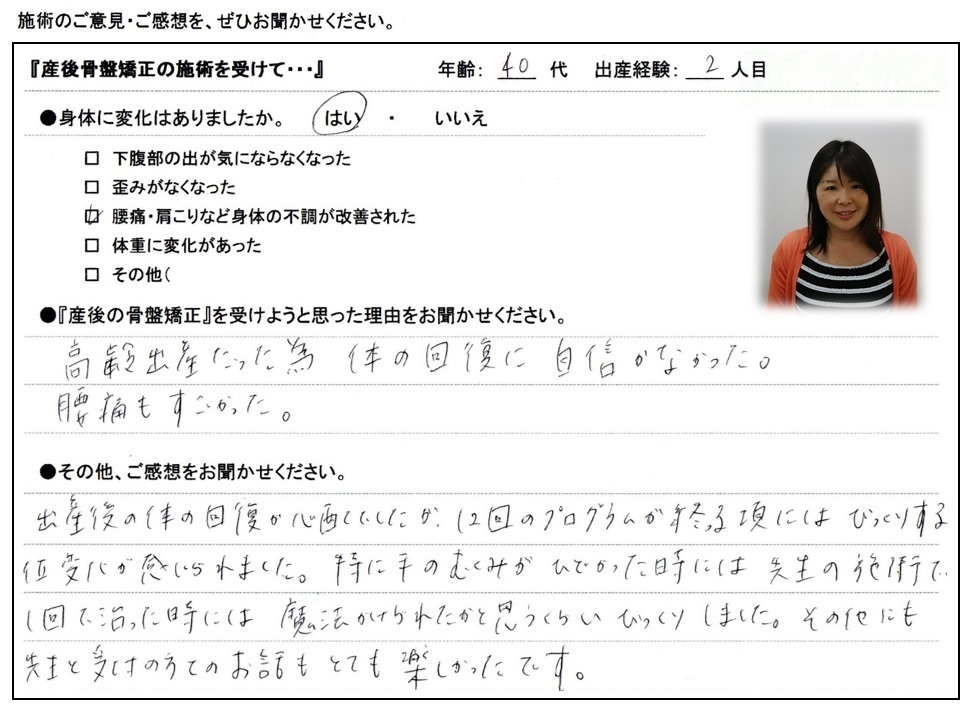 施術のご意見・ご感想を、ぜひお聞かせください。
『産後骨盤矯正の施術を受けて・・・』 年齢: 40 代 出産経験: 2 人目
●身体に変化はありましたか。 はい ・ いいえ
□ 下腹部の出が気にならなくなった
□ 歪みがなくなった
☑ 腰痛・肩こりなど身体の不調が改善された
□ 体重に変化があった
□ その他(
●『産後の骨盤矯正』を受けようと思った理由をお聞かせください。
高齢出産だった為 体の回復に自信がなかった。
腰痛もすごかった。
●その他、ご感想をお聞かせください。
出産後の体の回復が心配でしたが、12回のプログラムが終る項にはびっくりする
位変化が感じられました。特に手のむくみがひどかった時には先生の施術で
1回で治った時には魔法かけられたかと思うくらいびっくりしました。その他にも
先生と受付の方とのお話もとても楽しかったです。